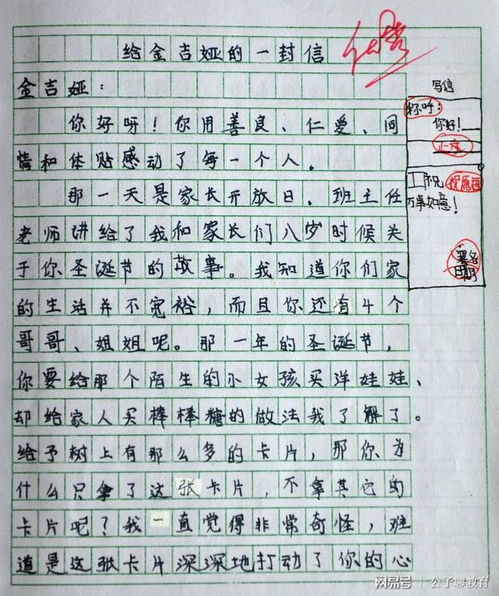 给金吉娅的一封信
优
金吉娅：
你好呀！你用善良、仁爱、同
情和体贴感动了每一个人。
那一天是家长开放日。班主任
老师讲给了我和家长们八岁时候关
于你圣诞节的故事。我知道你们家
的生活并不宽裕，而且你还有4个
哥哥、姐姐呢。那一年的圣诞节，
你要给那个陌生的小女孩买洋娃娃、
却给家人买棒棒糖的做法我了解了。
给予树上有那么多的卡片，那你为
什么只拿了这张卡片，不拿其它的
卡片呢？我一直觉得非常奇怪，难
道是这张卡片深深地打动了你的心
写信
称呼：
你好！
正文
祝愿语
祝
万事如意！
署名
日期
网易号 | 公子聊教育